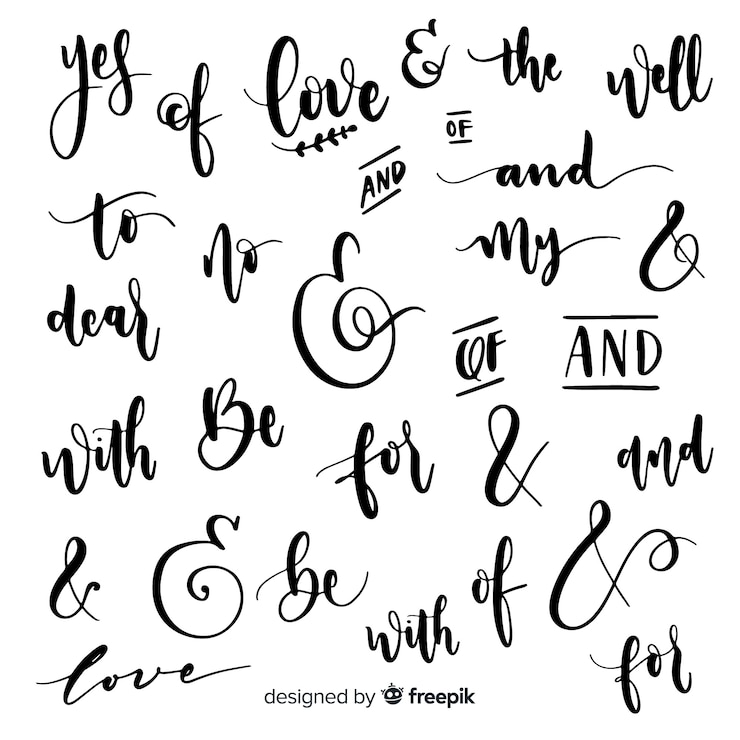 yes
of
love
&
the
well
AND
OF
and
to
no
&
my
&
dear
OF
AND
with
Be
for
&
and
&
&
be
with
of
&
love
for
designed by freepik